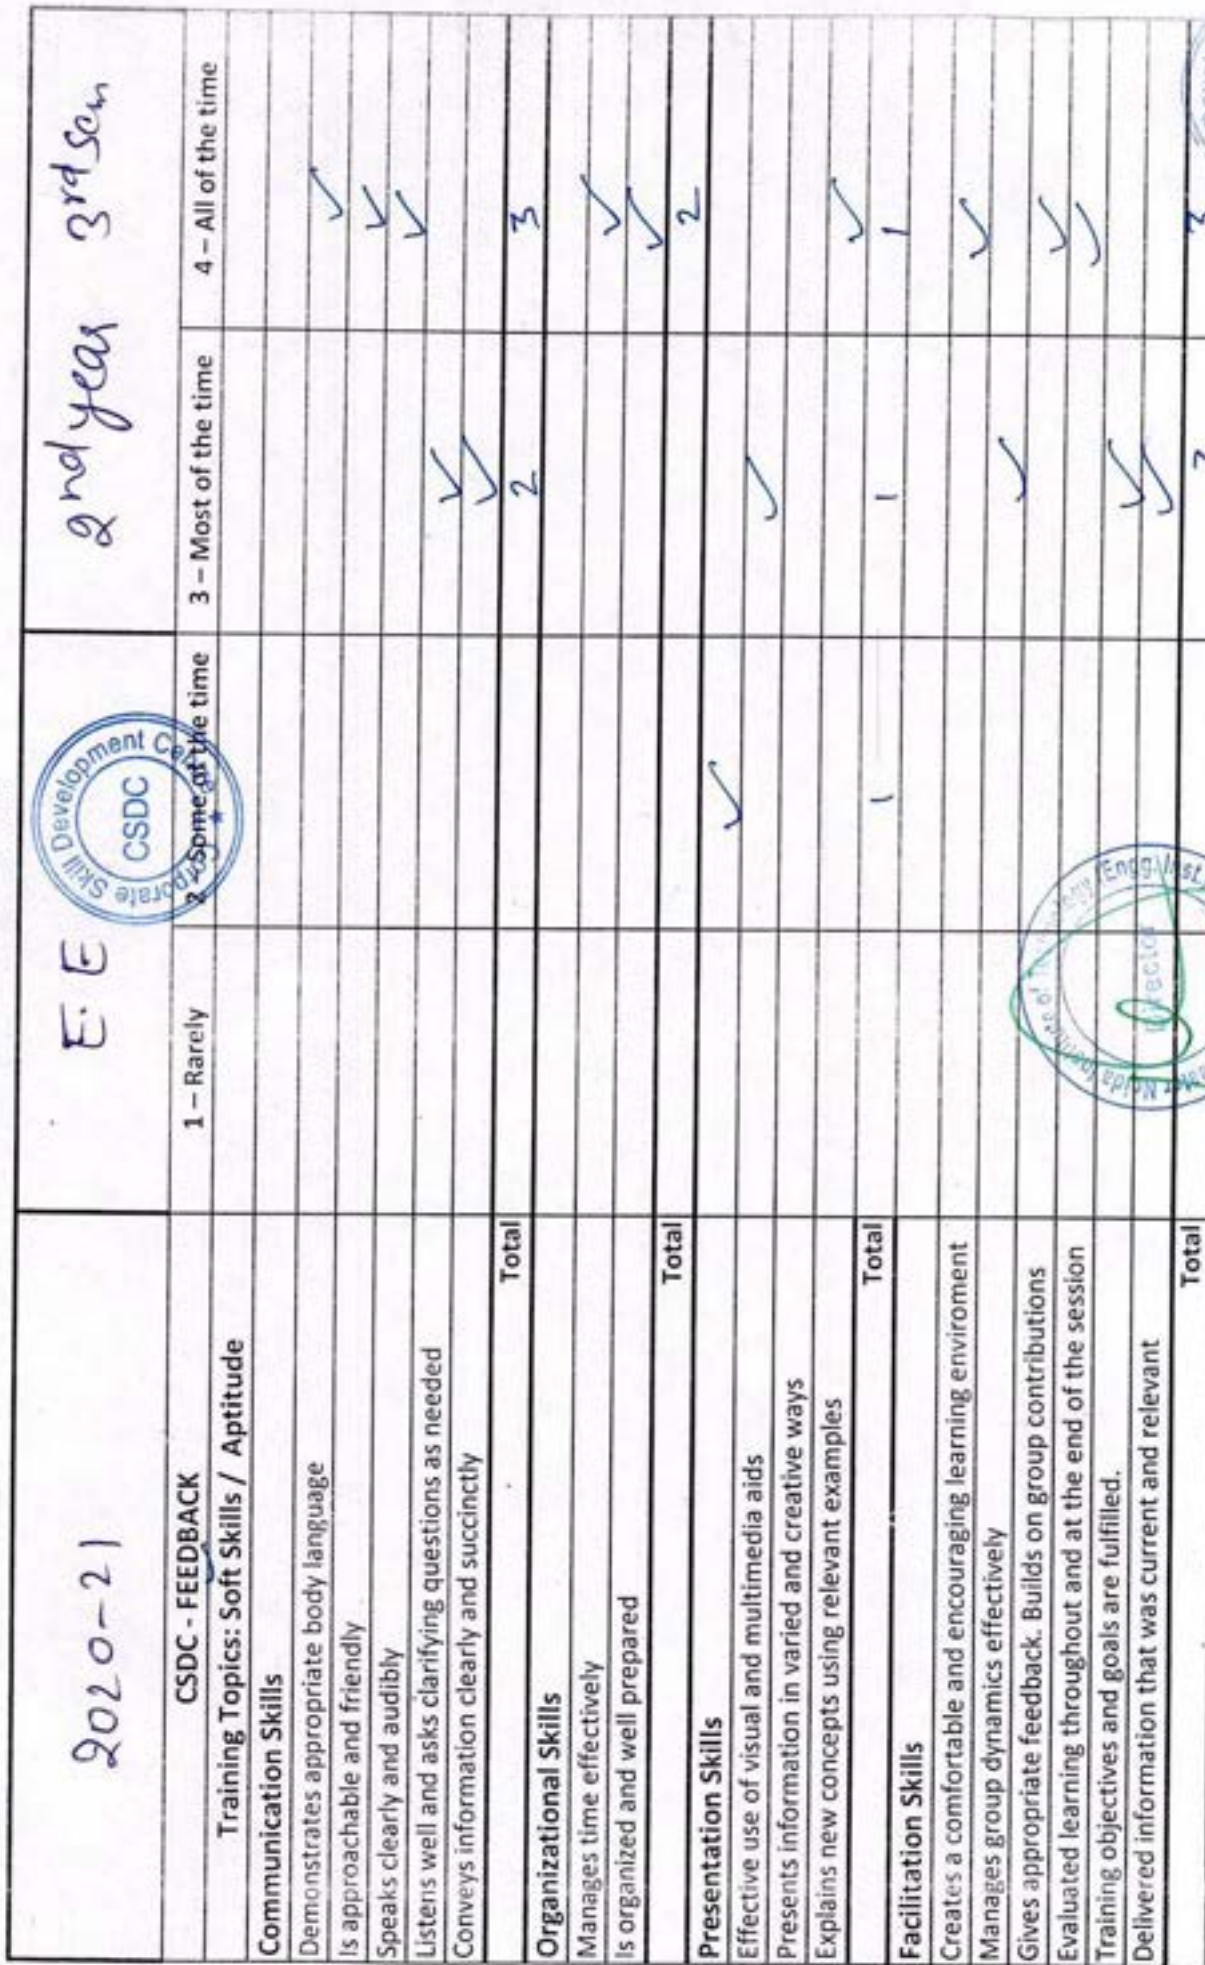 2020-21 E.E 2nd year 3rd Sem
Corporate Skill Development
CSDC
CSDC - FEEDBACK 1 – Rarely 2 – Some of the time 3 – Most of the time 4 – All of the time
Training Topics: Soft Skills / Aptitude
Communication Skills
Demonstrates appropriate body language ✓
Is approachable and friendly ✓
Speaks clearly and audibly ✓
Listens well and asks clarifying questions as needed ✓
Conveys information clearly and succinctly ✓
Total 2 3
Organizational Skills
Manages time effectively ✓
Is organized and well prepared ✓
Total 2
Presentation Skills
Effective use of visual and multimedia aids ✓
Presents information in varied and creative ways ✓
Explains new concepts using relevant examples ✓
Total 1 1 1
Facilitation Skills
Creates a comfortable and encouraging learning enviroment ✓
Manages group dynamics effectively ✓
Gives appropriate feedback. Builds on group contributions ✓
Evaluated learning throughout and at the end of the session ✓
Training objectives and goals are fulfilled. ✓
Delivered information that was current and relevant ✓
Total 3 3
Noida of (Engg. Inst.
Director